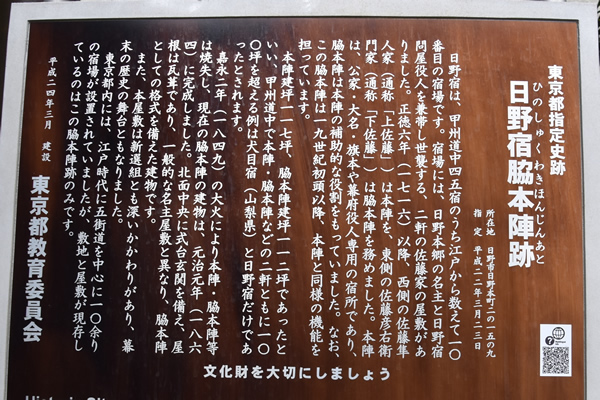 東京都指定史跡
ひのしゅくわきほんじんあと
日野宿脇本陣跡
所在地 日野市日野本町二の一五の九
指定 平成二二年三月二三日
日野宿は、甲州道中四五宿のうち江戸から数えて一〇
番目の宿場です。宿場には、日野本郷の名主と日野宿
問屋役人を兼帯し世襲する、二軒の佐藤家の屋敷があ
りました。正徳六年(一七一六)以降、西側の佐藤隼
人家(通称「上佐藤」)は本陣を、東側の佐藤彦右衛
門家(通称「下佐藤」)は脇本陣を務めました。本陣
は、公家・大名・旗本や幕府役人専用の宿所であり、
脇本陣は本陣の補助的な役割をもっていました。なお、
この脇本陣は一九世紀初頭以降、本陣と同様の機能を
担っています。
本陣建坪一一七坪、脇本陣建坪一一二坪であったと
いい、甲州道中で本陣・脇本陣などの二軒ともに一〇
〇坪を超える例は犬目宿(山梨県)と日野宿だけであ
ったとされます。
嘉永二年(一八四九)の大火により本陣・脇本陣等
は焼失し、現在の脇本陣の建物は、元治元年(一八六
四)に完成しました。北面中央に式台玄関を備え、屋
根は瓦葺であり、一般的な名主屋敷と異なり、脇本陣
としての格式を備えた建物です。
また、本屋敷は新選組とも深いかかわりがあり、幕
末の歴史の舞台ともなりました。
東京都内には、江戸時代に五街道を中心に一〇余り
の宿場が設置されていましたが、敷地と屋敷が現存し
ているのはこの脇本陣跡のみです。
平成二四年三月 建設
東京都教育委員会
文化財を大切にしましょう